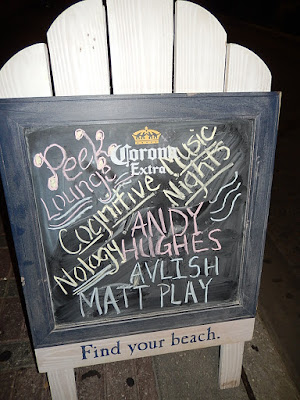 Peek
Lounge
Corona
Extra
Cognitive
Nology
Music
Nights
ANDY
HUGHES
AVLISH
MATT PLAY
Find your beach.